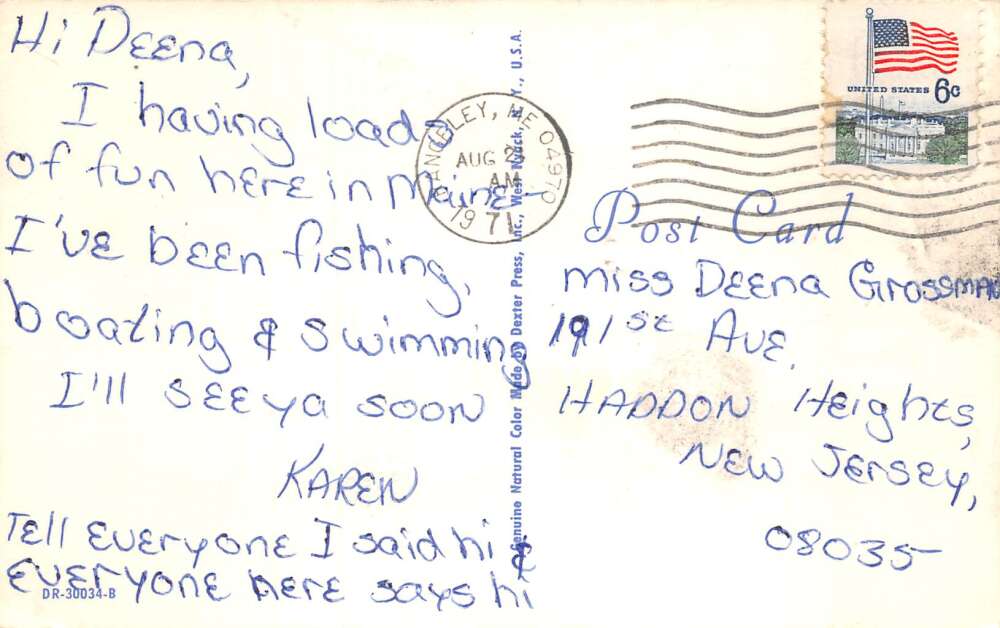 Hi Deena,
I having loads
of fun here in Maine-
I've been fishing,
boating & swimming
I'll see ya soon
KAREN
Tell everyone I said hi &
everyone here says hi
DR-30034-B
Genuine Natural Color Made by Dexter Press, Inc., West Nyack, N.Y., U.S.A.
RANGELEY, ME 04970
AUG 2
AM
1971
UNITED STATES 6c
Post Card
Miss Deena Grossman
191st Ave.
HADDON Heights,
New Jersey,
08035